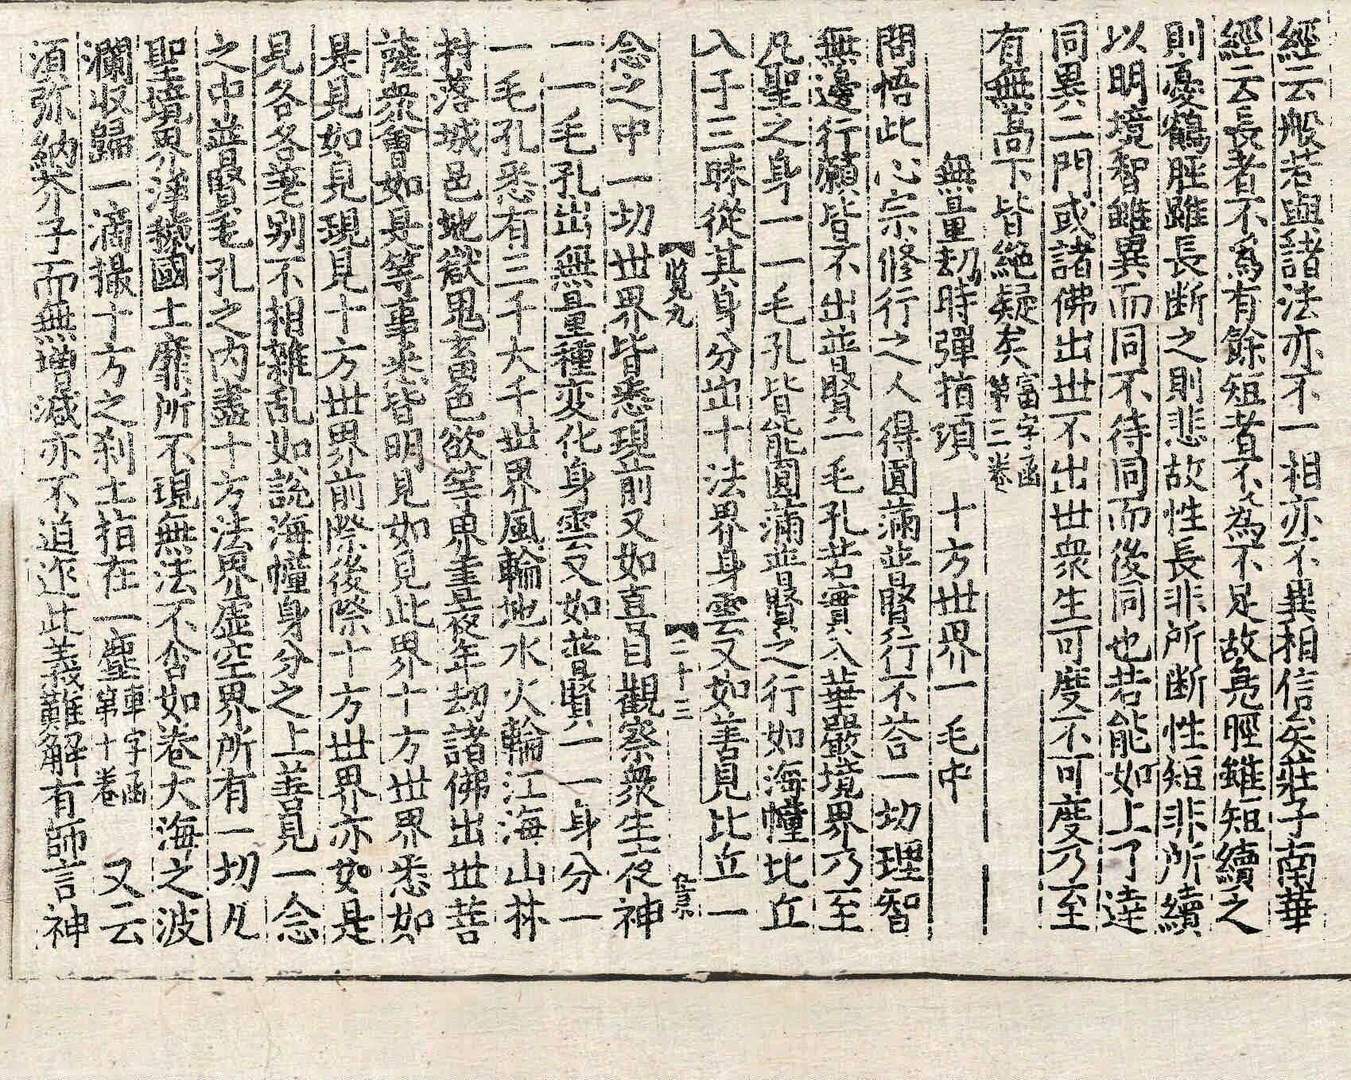 經云般若與諸法亦不一相亦不異相信矣莊子南華
經云長者不爲有餘短者不為不足故鳧脛雖短續之
則憂鶴脛雖長断之則悲故性長非所断性短非所續
以明境智雖異而同不待同而後同也若能如上了達
同異二門或諸佛出丗不出丗衆生可度不可度乃至
有無高下皆絶疑矣富字函第三卷
無量劫時彈指頃 十方丗界一毛中
問悟此心宗修行之人得圓滿普賢行不荅一切理智
無邊行願皆不出普賢一毛孔若實入華嚴境界乃至
凡聖之身一一毛孔皆能圓滿普賢之行如海幢比丘
入于三昧從其身分出十法界身雲又如善見比丘一
【览九 【二十三
念之中一切丗界皆悉現前又如喜目觀察衆生夜神
一一毛孔出無量種变化身雲又如普賢一一身分一
一毛孔悉有三千大千丗界風輪地水火輪江海山林
村落城邑地獄鬼畜色欲等界晝夜年劫諸佛出丗菩
薩衆會如是等事悉皆明見如見此界十方丗界悉如
是見如見現見十方丗界前際後際十方丗界亦如是
見各各差别不相雜乱如説海幢身分之上善見一念
之中普賢毛孔之内盡十方法界虚空界所有一切凡
聖境界淨穢國土靡所不現無法不含如卷大海之波
瀾収歸一滴撮十方之刹土指在一塵車字函第十卷 又云
須弥納芥子而無増减亦不迫迮此義難解有師言神